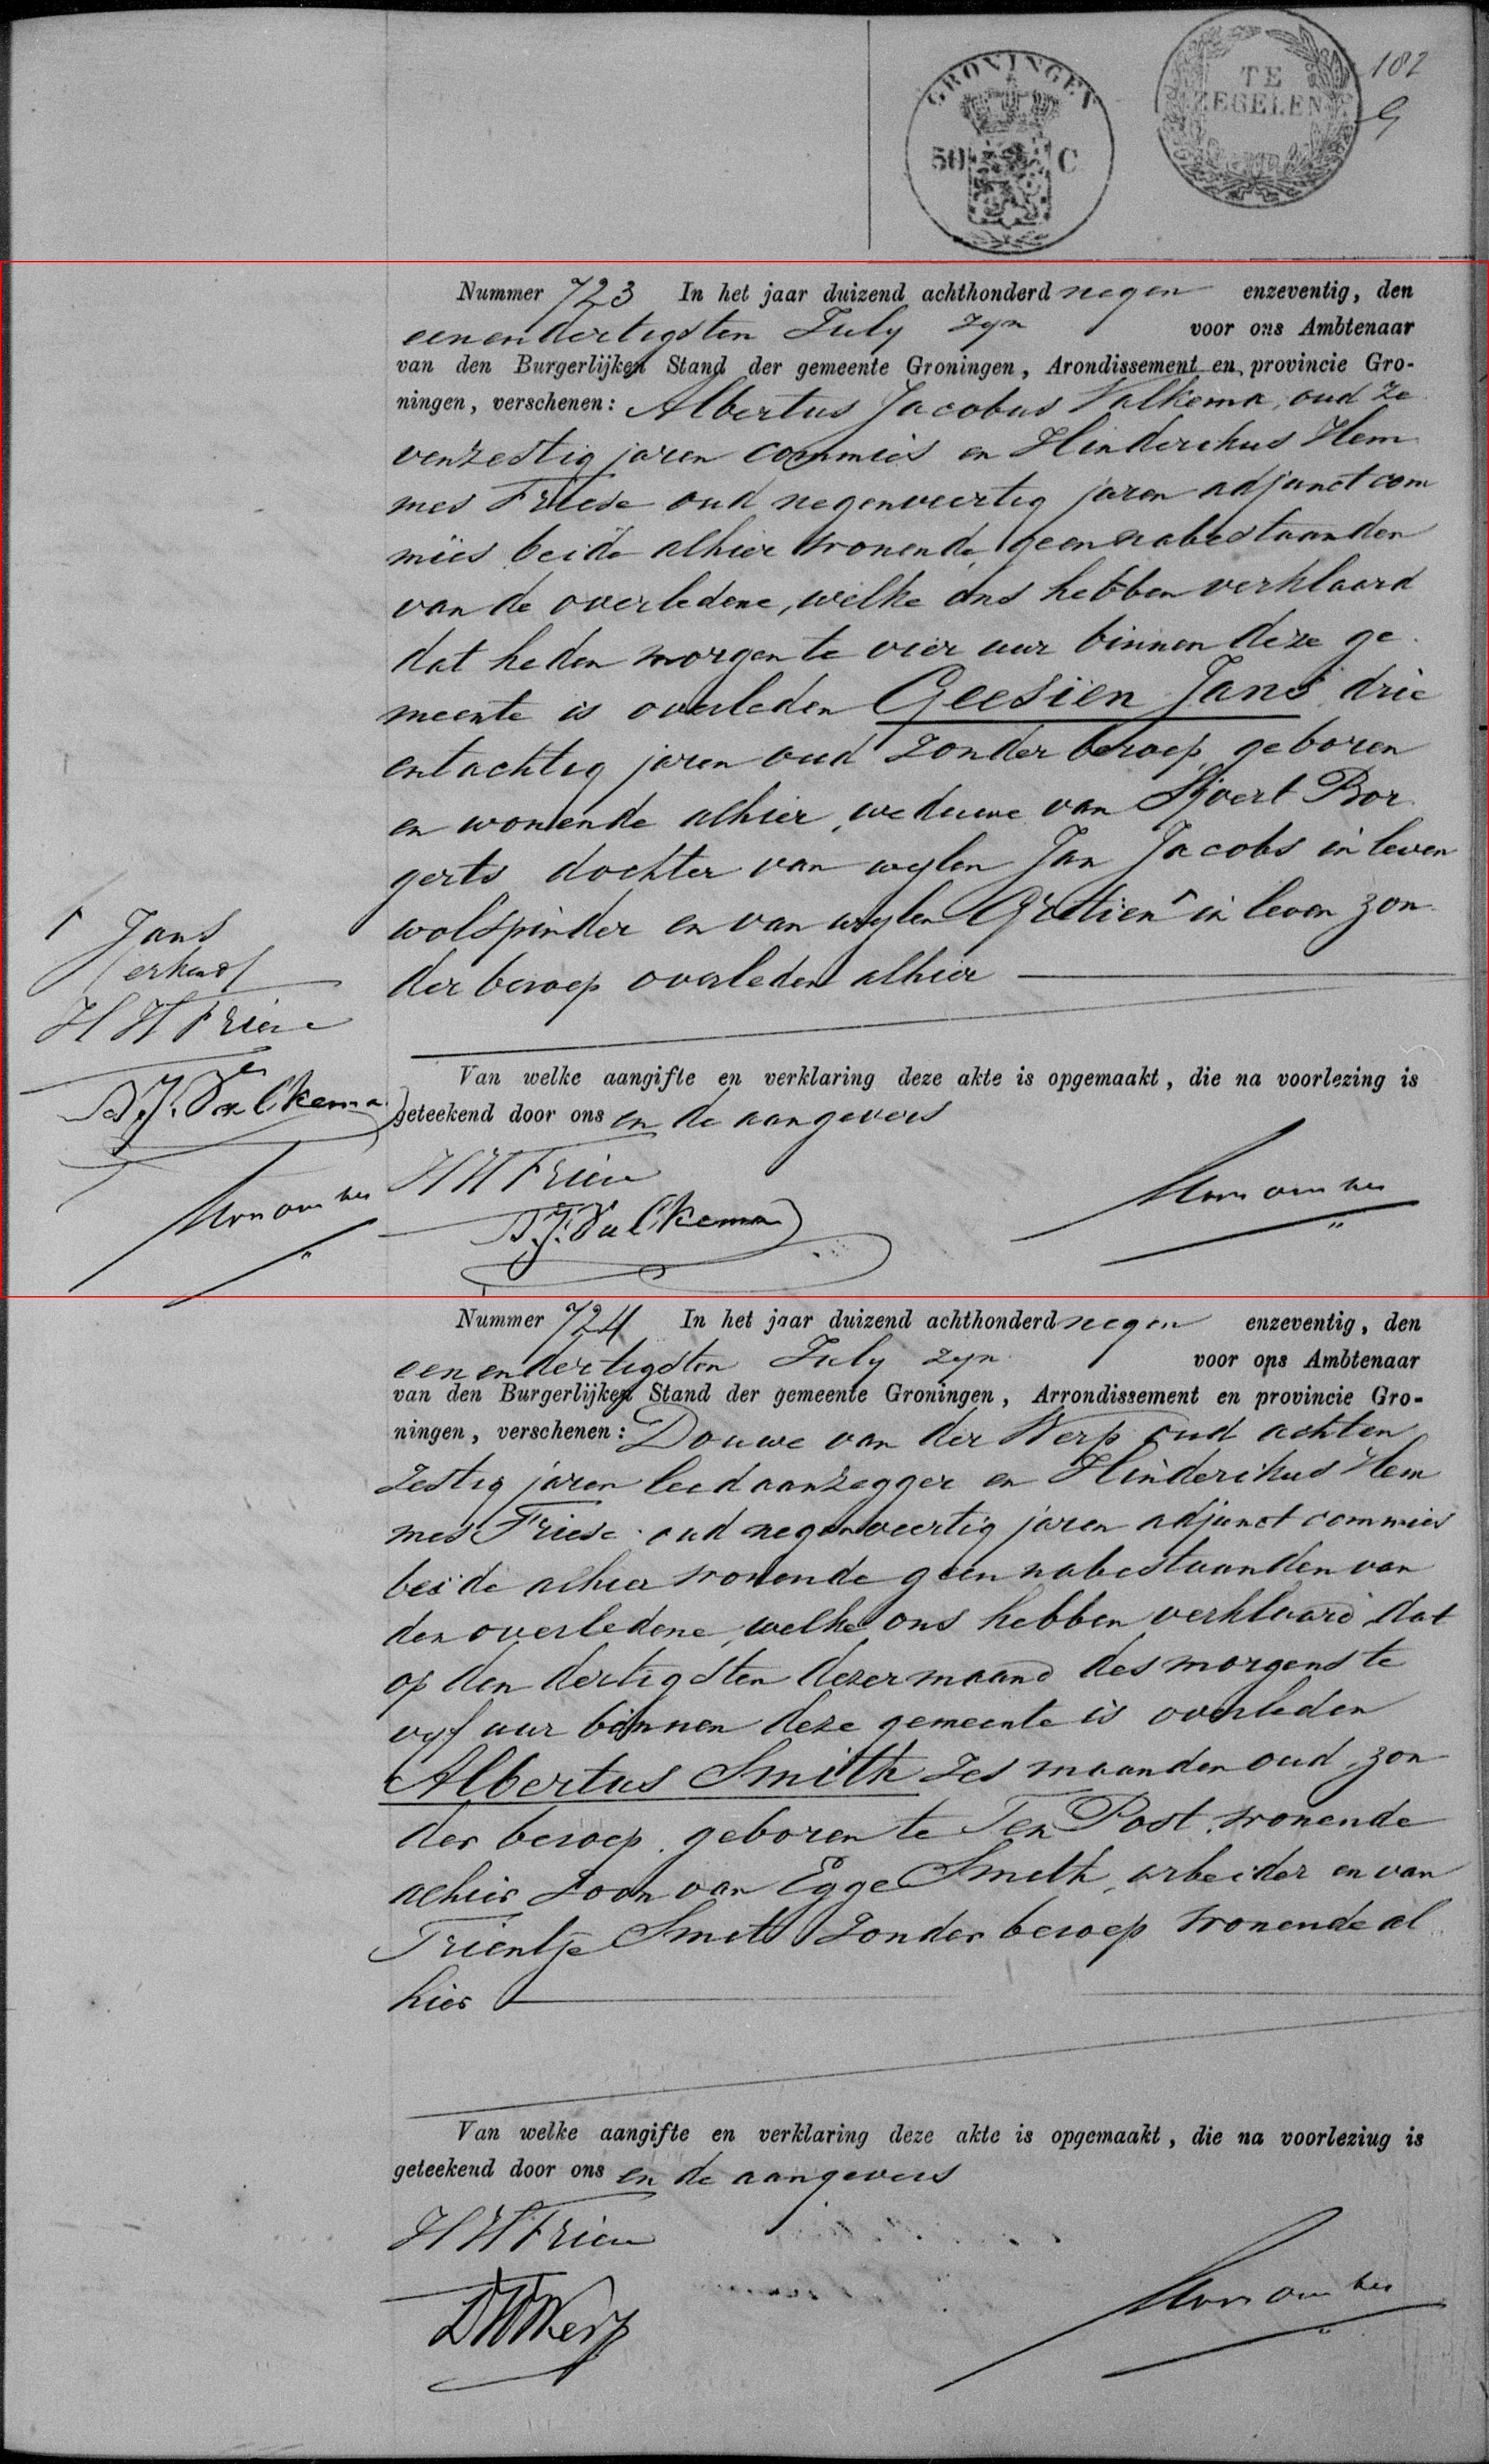 GRONINGEN
50 C
TE
ZEGELEN
182
Nummer 723 In het jaar duizend achthonderd negen enzeventig, den
eenendertigsten July zyn voor ons Ambtenaar
van den Burgerlijken Stand der gemeente Groningen, Arondissement en provincie Gro-
ningen, verschenen: Albertus Jacobus Valkema, oud ze
venzestig jaren commies en Hinderikus Hem
mes Friese oud negenveertig jaren adjunct com
mies beide alhier wonende, geen nabestaanden
van de overledene, welke ons hebben verklaard
dat heden morgen te vier uur binnen deze ge
meente is overleden Geesien Jans drie
entachtig jaren oud zonder beroep, geboren
en wonende alhier, weduwe van Sjoert Bor
gerts dochter van wylen Jan Jacobs in leven
wolspinder en van wylen Grietien in leven zon
der beroep overleden alhier
Jans
erkend
H H Friese
A. J. Valkema
Van welke aangifte en verklaring deze akte is opgemaakt, die na voorlezing is
geteekend door ons en de aangevers
H H Friese
A. J. Valkema
Nummer 724 In het jaar duizend achthonderd negen enzeventig, den
eenendertigsten July zyn voor ons Ambtenaar
van den Burgerlijken Stand der gemeente Groningen, Arrondissement en provincie Gro-
ningen, verschenen: Douwe van der Werp oud achten
zestig jaren leedaanzegger en Hinderikus Hem
mes Friese oud negenveertig jaren adjunct commies
beide alhier wonende geen nabestaanden van
den overledene, welke ons hebben verklaard dat
op den dertigsten dezer maand des morgens te
vyf uur binnen deze gemeente is overleden
Albertus Smith zes maanden oud, zon
der beroep, geboren te Ten Post, wonende
alhier zoon van Egge Smith, arbeider en van
Trientje Smit zonder beroep wonende al
hier
Van welke aangifte en verklaring deze akte is opgemaakt, die na voorlezing is
geteekend door ons en de aangevers
H H Friese
D V D Werp